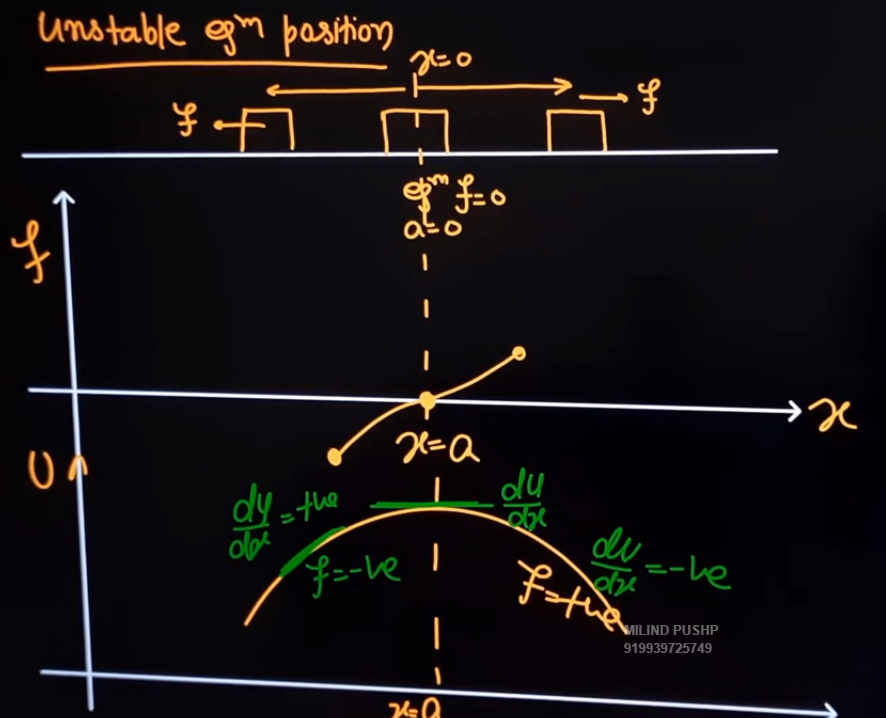 Unstable eqm position
x=0
f
f
eqm f=0
a=0
f
x
x=a
U
dy/dx = +ve
dU/dx
f=-ve
dU/dx = -ve
f=+ve
MILIND PUSHP
919939725749
x=a